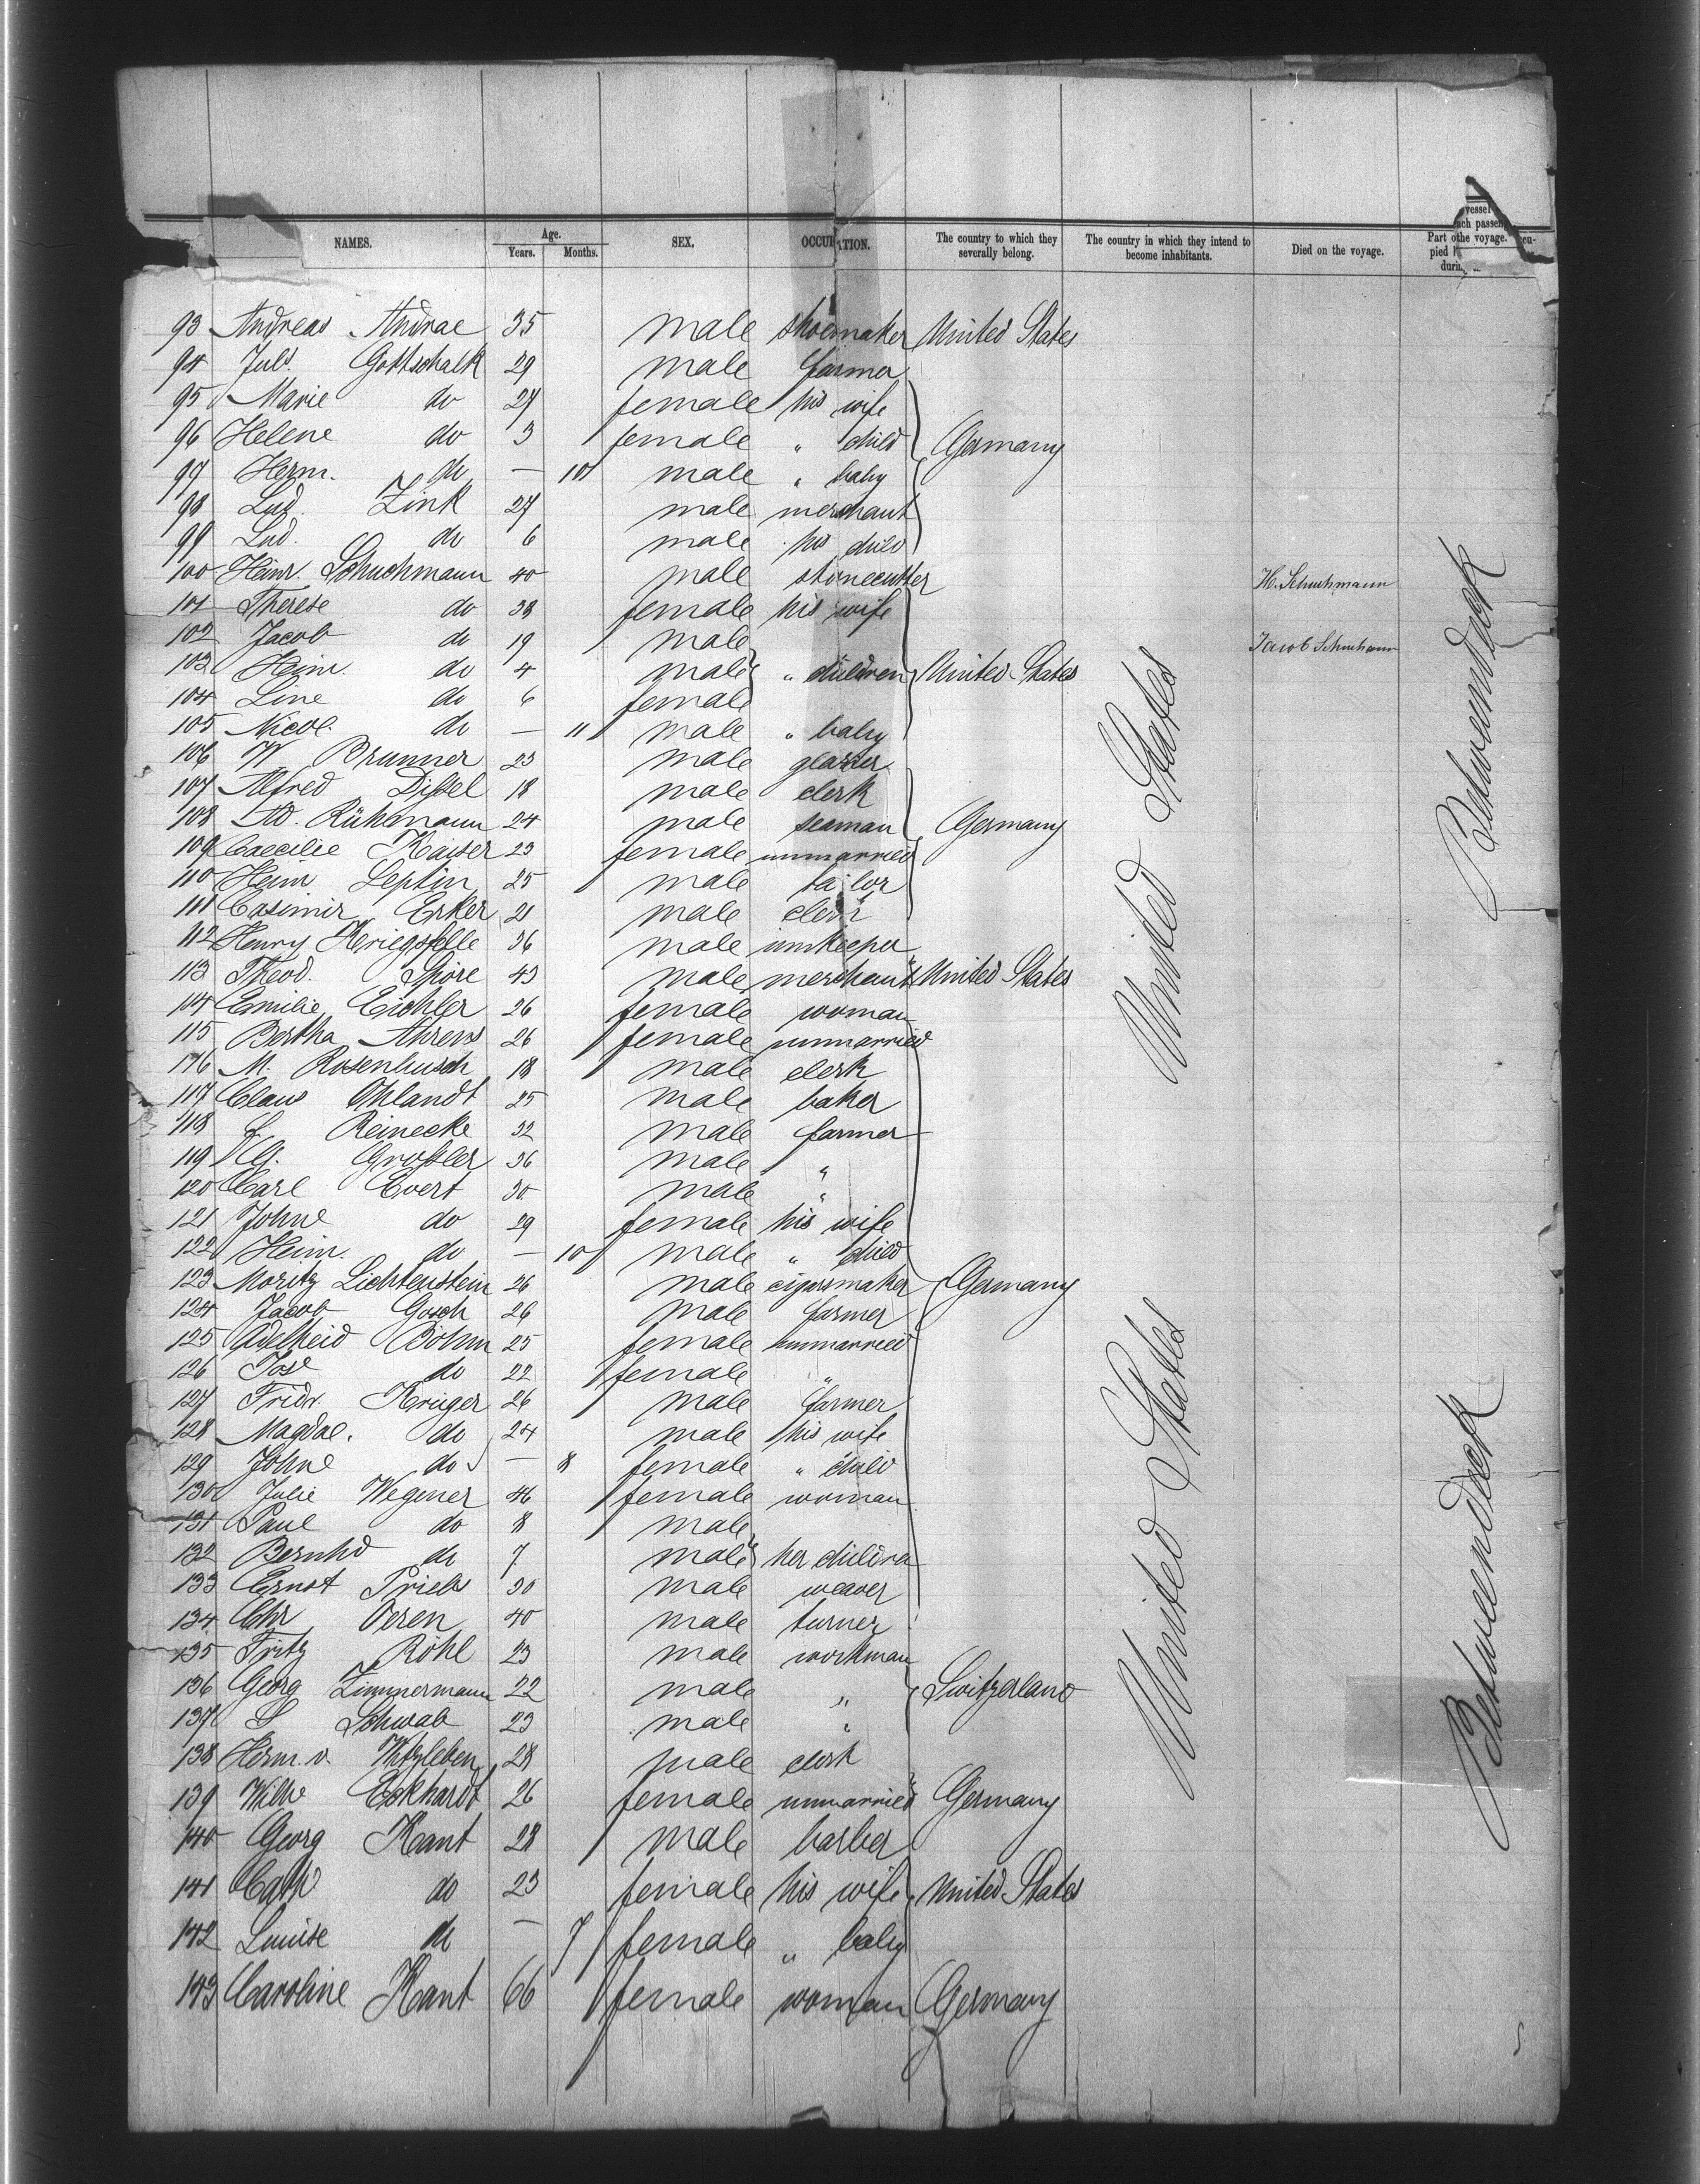 NAMES. Age. Years. Months. SEX. OCCUPATION. The country to which they severally belong. The country in which they intend to become inhabitants. Died on the voyage. vessel Part o the voyage.
93 Andreas Andrae 35 male shoemaker United States
94 Juls. Gottschalk 29 male farmer
95 Marie do 27 female his wife
96 Helene do 3 female " child Germany
97 Herm. do — 10 male " baby
98 Lud. Zink 27 male merchant
99 Lud. do 6 male his child
100 Heinr. Schuchmann 40 male stonecutter H. Schuchmann
101 Therese do 38 female his wife
102 Jacob do 19 male Jacob
103 Heinr. do 4 male " children United States
104 Line do 6 female
105 Nicol. do — 11 male " baby
106 W Brunner 23 male glazier
107 Alfred Dißel 18 male clerk
108 Ad. Rühlmann 24 male seaman Germany
109 Caecilie Kaiser 23 female unmarried
110 Heinr Leptin 25 male tailor
111 Casimir Erker 21 male clerk
112 Henry 36 male innkeeper
113 Theod. Spire 43 male merchant United States
114 Emilie Eichler 26 female woman
115 Bertha Ahrens 26 female unmarried
116 M. Rosenbusch 18 male clerk
117 Claus Ohlandt 25 male baker
118 L. Reinecke 32 male farmer
119 Großler 36 male "
120 Carl Evert 30 male "
121 Johne do 29 female his wife
122 Heinr. do — 10 male " child
123 Moritz Lichtenstein 26 male cigarsmaker Germany
124 Jacob Gosch 26 male farmer
125 Adelheid Böhm 25 female unmarried
126 do 22 female "
127 Fridr. Krüger 26 male farmer
128 Magdal. do 24 male his wife
129 Johne do — 8 female " child
130 Julie Wegener 46 female woman
131 Paul do 8 male
132 Bernhd do 7 male her children
133 Ernst Priebs 30 male weaver
134 Chr Oeren 40 male turner
135 Fritz Röhl 23 male workman
136 Georg Zimmermann 22 male " Switzerland
137 S Schwab 23 male "
138 Herm. v. Witzleben 28 male clerk
139 Wilhe Eckhardt 26 female unmarried Germany
140 Georg Kant 28 male barber
141 Cath do 23 female his wife United States
142 Louise do — 7 female " baby
143 Caroline Kant 66 female woman Germany
United States
United States
Betweendeck
Betweendeck